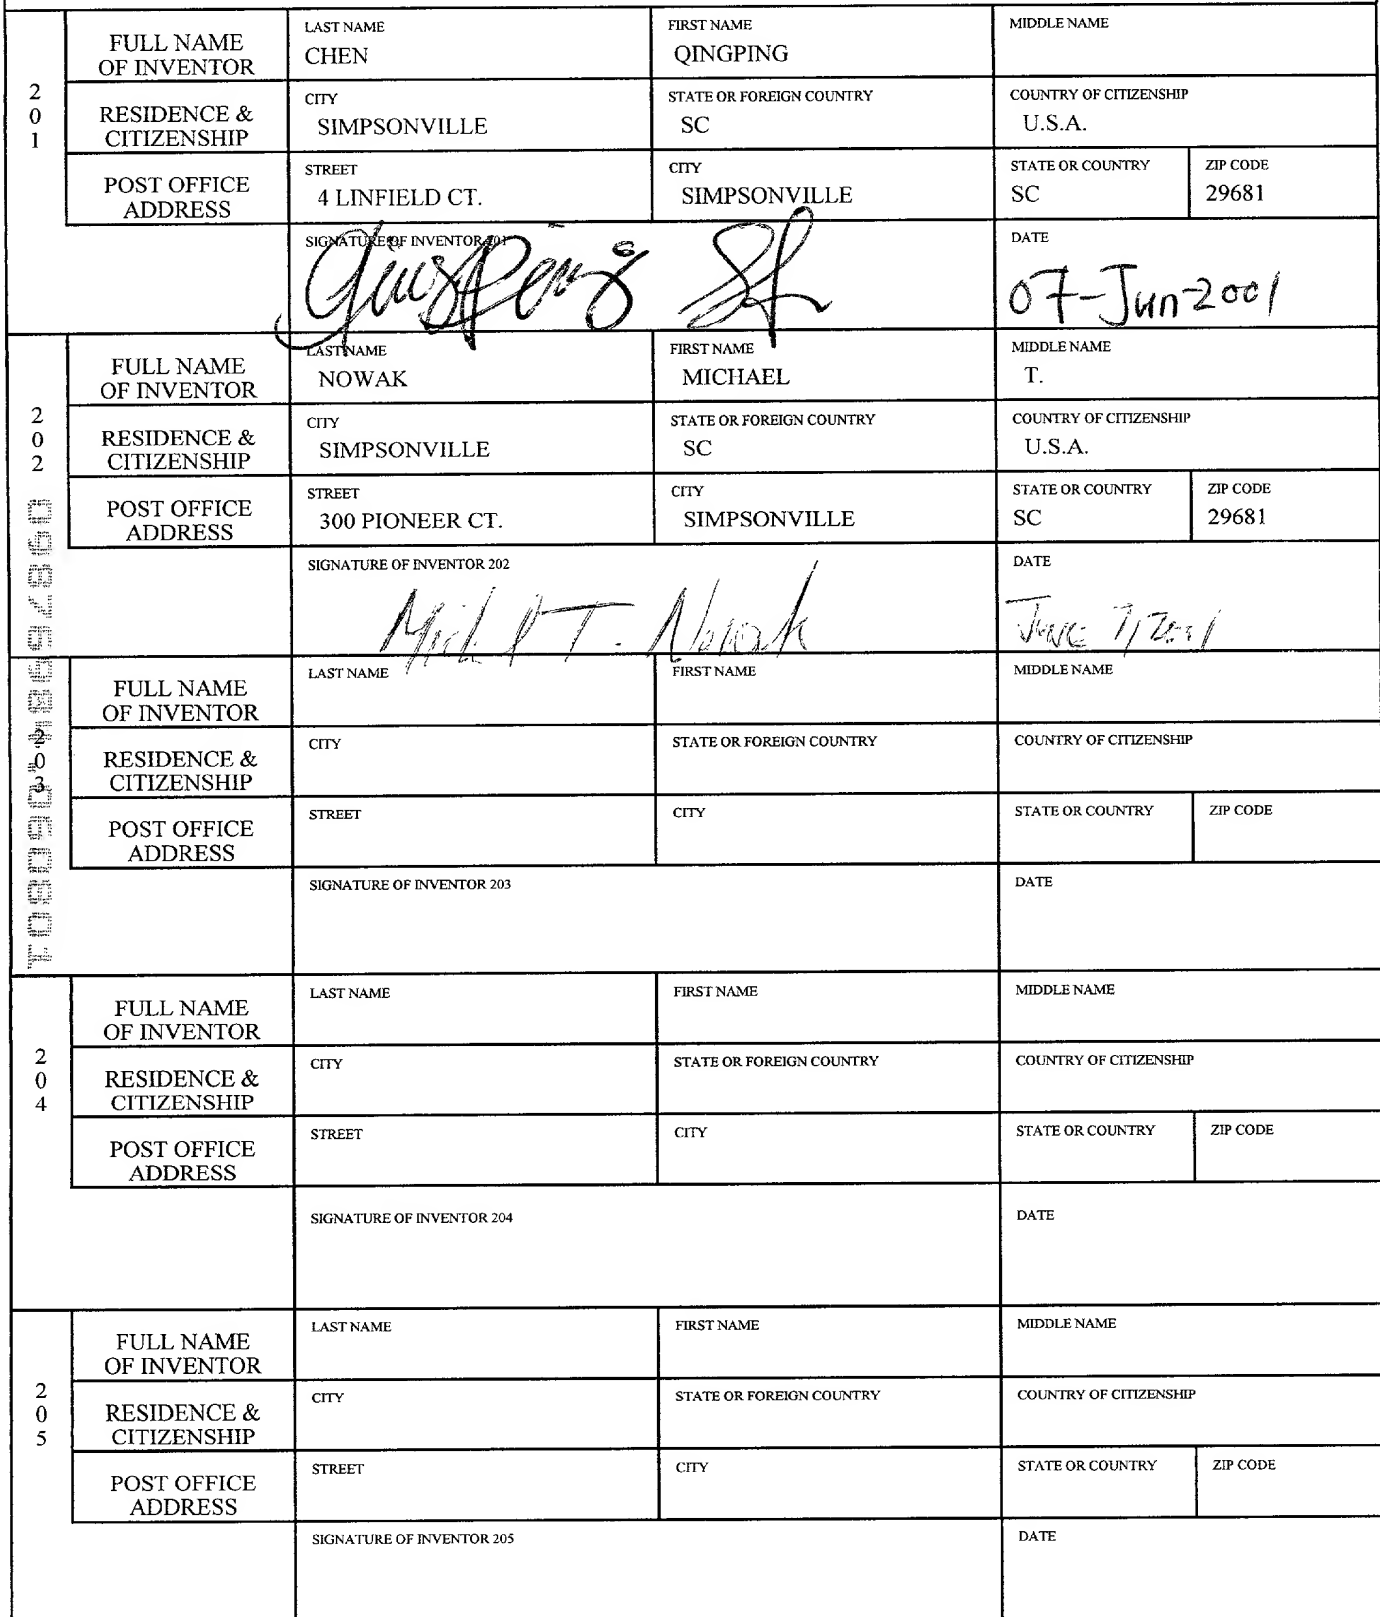 201
FULL NAME OF INVENTOR
LAST NAME
CHEN
FIRST NAME
QINGPING
MIDDLE NAME
RESIDENCE & CITIZENSHIP
CITY
SIMPSONVILLE
STATE OR FOREIGN COUNTRY
SC
COUNTRY OF CITIZENSHIP
U.S.A.
POST OFFICE ADDRESS
STREET
4 LINFIELD CT.
CITY
SIMPSONVILLE
STATE OR COUNTRY
SC
ZIP CODE
29681
SIGNATURE OF INVENTOR 201
DATE
07-Jun-2001
202
FULL NAME OF INVENTOR
LAST NAME
NOWAK
FIRST NAME
MICHAEL
MIDDLE NAME
T.
RESIDENCE & CITIZENSHIP
CITY
SIMPSONVILLE
STATE OR FOREIGN COUNTRY
SC
COUNTRY OF CITIZENSHIP
U.S.A.
POST OFFICE ADDRESS
STREET
300 PIONEER CT.
CITY
SIMPSONVILLE
STATE OR COUNTRY
SC
ZIP CODE
29681
SIGNATURE OF INVENTOR 202
Michael T. Nowak
DATE
JUNE 7, 2001
203
FULL NAME OF INVENTOR
LAST NAME
FIRST NAME
MIDDLE NAME
RESIDENCE & CITIZENSHIP
CITY
STATE OR FOREIGN COUNTRY
COUNTRY OF CITIZENSHIP
POST OFFICE ADDRESS
STREET
CITY
STATE OR COUNTRY
ZIP CODE
SIGNATURE OF INVENTOR 203
DATE
204
FULL NAME OF INVENTOR
LAST NAME
FIRST NAME
MIDDLE NAME
RESIDENCE & CITIZENSHIP
CITY
STATE OR FOREIGN COUNTRY
COUNTRY OF CITIZENSHIP
POST OFFICE ADDRESS
STREET
CITY
STATE OR COUNTRY
ZIP CODE
SIGNATURE OF INVENTOR 204
DATE
205
FULL NAME OF INVENTOR
LAST NAME
FIRST NAME
MIDDLE NAME
RESIDENCE & CITIZENSHIP
CITY
STATE OR FOREIGN COUNTRY
COUNTRY OF CITIZENSHIP
POST OFFICE ADDRESS
STREET
CITY
STATE OR COUNTRY
ZIP CODE
SIGNATURE OF INVENTOR 205
DATE